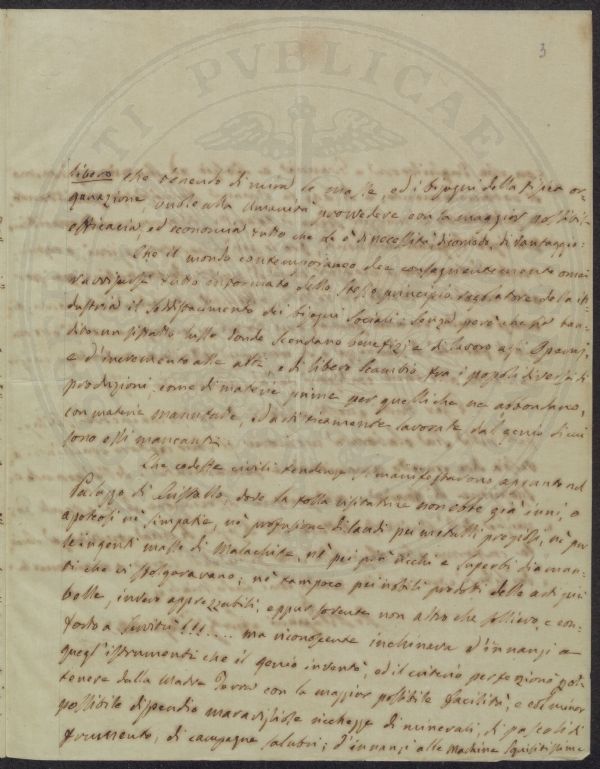 3
TI PVBLICAE
libero che tenendo di mira le masse, ed i bisogni della fisica or-
ganazione umanità provvedere con la maggior possibile
efficacia, ed economia tutto che le è di necessità, di comodo, di vantaggio:
Che il mondo contemporaneo dee conseguentemente omai
tutto informato dello stesso principio regolatore de la in-
dustria il soddisfacimento dei bisogni sociali: senza però che
un siffatto lusso donde scendano benefizi e di lavoro agli Operai,
e d'incremento alle arti, e di libero scambio fra i popoli diversi di
produzioni, come di materie prime per quelli che ne abbondano,
con materie manufatte, ed artisticamente lavorate dal genio di cui
sono essi mancanti.
Che codeste civili tendenze si manifestarono appunto nel
Palazzo di Cristallo, dove la folla visitatrice non ebbe già inni, o
apoteosi nè simpatie, nè profusione di laudi pei metalli preziosi, nè per
le ingenti masse di Malachite, nè pei più ricchi e superbi diaman-
ti che vi sfolgoravano; nè tampoco pei nobili prodotti delle arti più
belle, invero apprezzabili, eppur sovente non altro che sollievo, e con-
forto a servitù!!!.... ma riconoscente inchinava d'innanzi a
quegl'istrumenti che il genio inventò, ed il criterio perfezionò
tenere dalla Madre Terra con la maggior possibile facilità, e col minor
possibile dispendio maravigliose ricchezze di minerali, di pascoli di
frumento, di campagne salubri; d'innanzi alle machine squisitissime